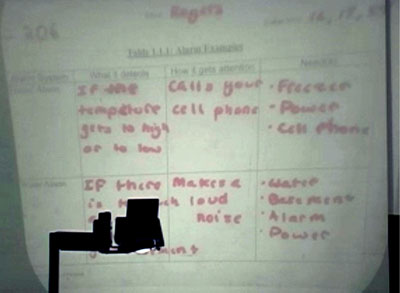 Rogers
206
16, 17, 
Table 1.1.1: Alarm Examples
Alarm System
What it detects
How it gets attention
Needs
Alarm
If the
tempeture
gets to high
or to low
Calls your
cell phone
• Freezer
• Power
• Cell phone
Alarm
If there
is
Makes a
loud
noise
• Water
• Basement
• Alarm
• Power